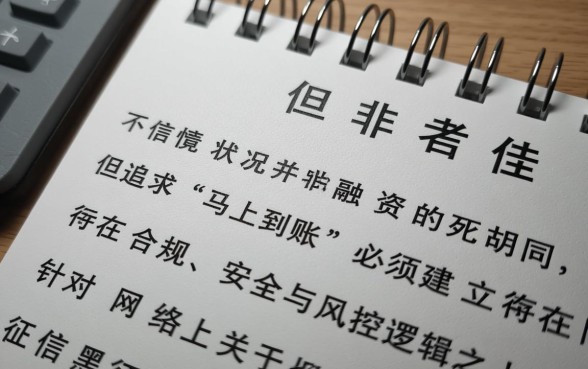 但非者佳
不信 状况并非融 资的死胡同，
但追求“马上到账”必须建 立 在
存在合规、安全与风控逻辑之上
针对 网 络上关于
征信黑